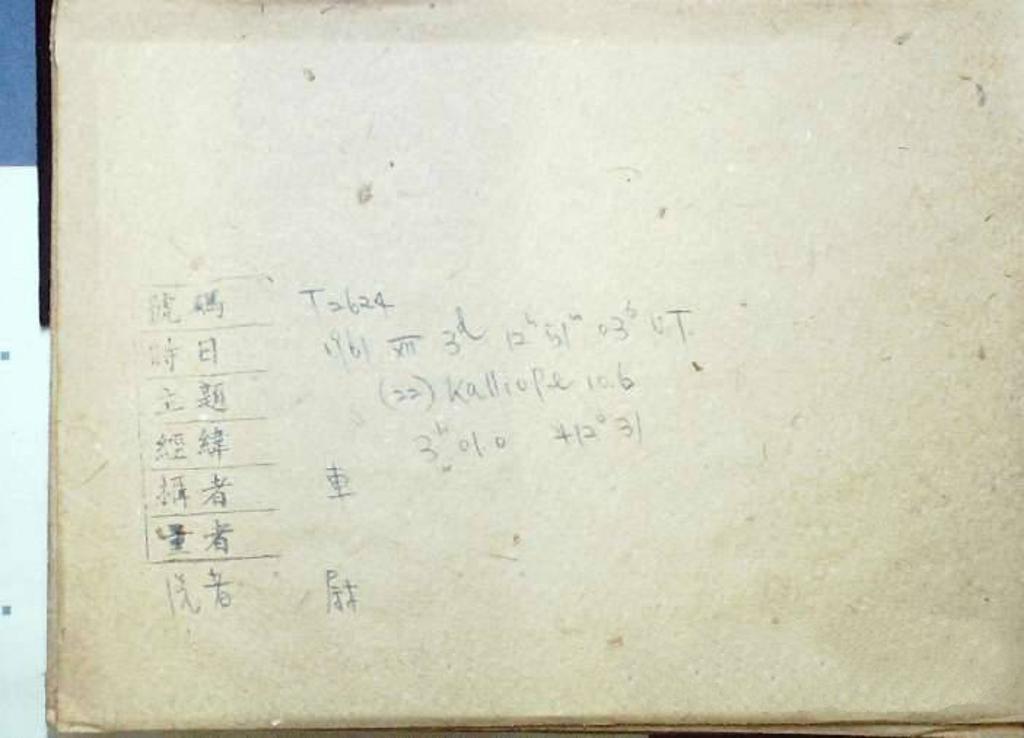 號碼 T2624
時日 1961 XII 3d 12h 51m 03s U.T.
主題 (22) Kalliope 10.6
經緯 3h 01.0 +12° 31
攝者 車
量者
洗者 尉